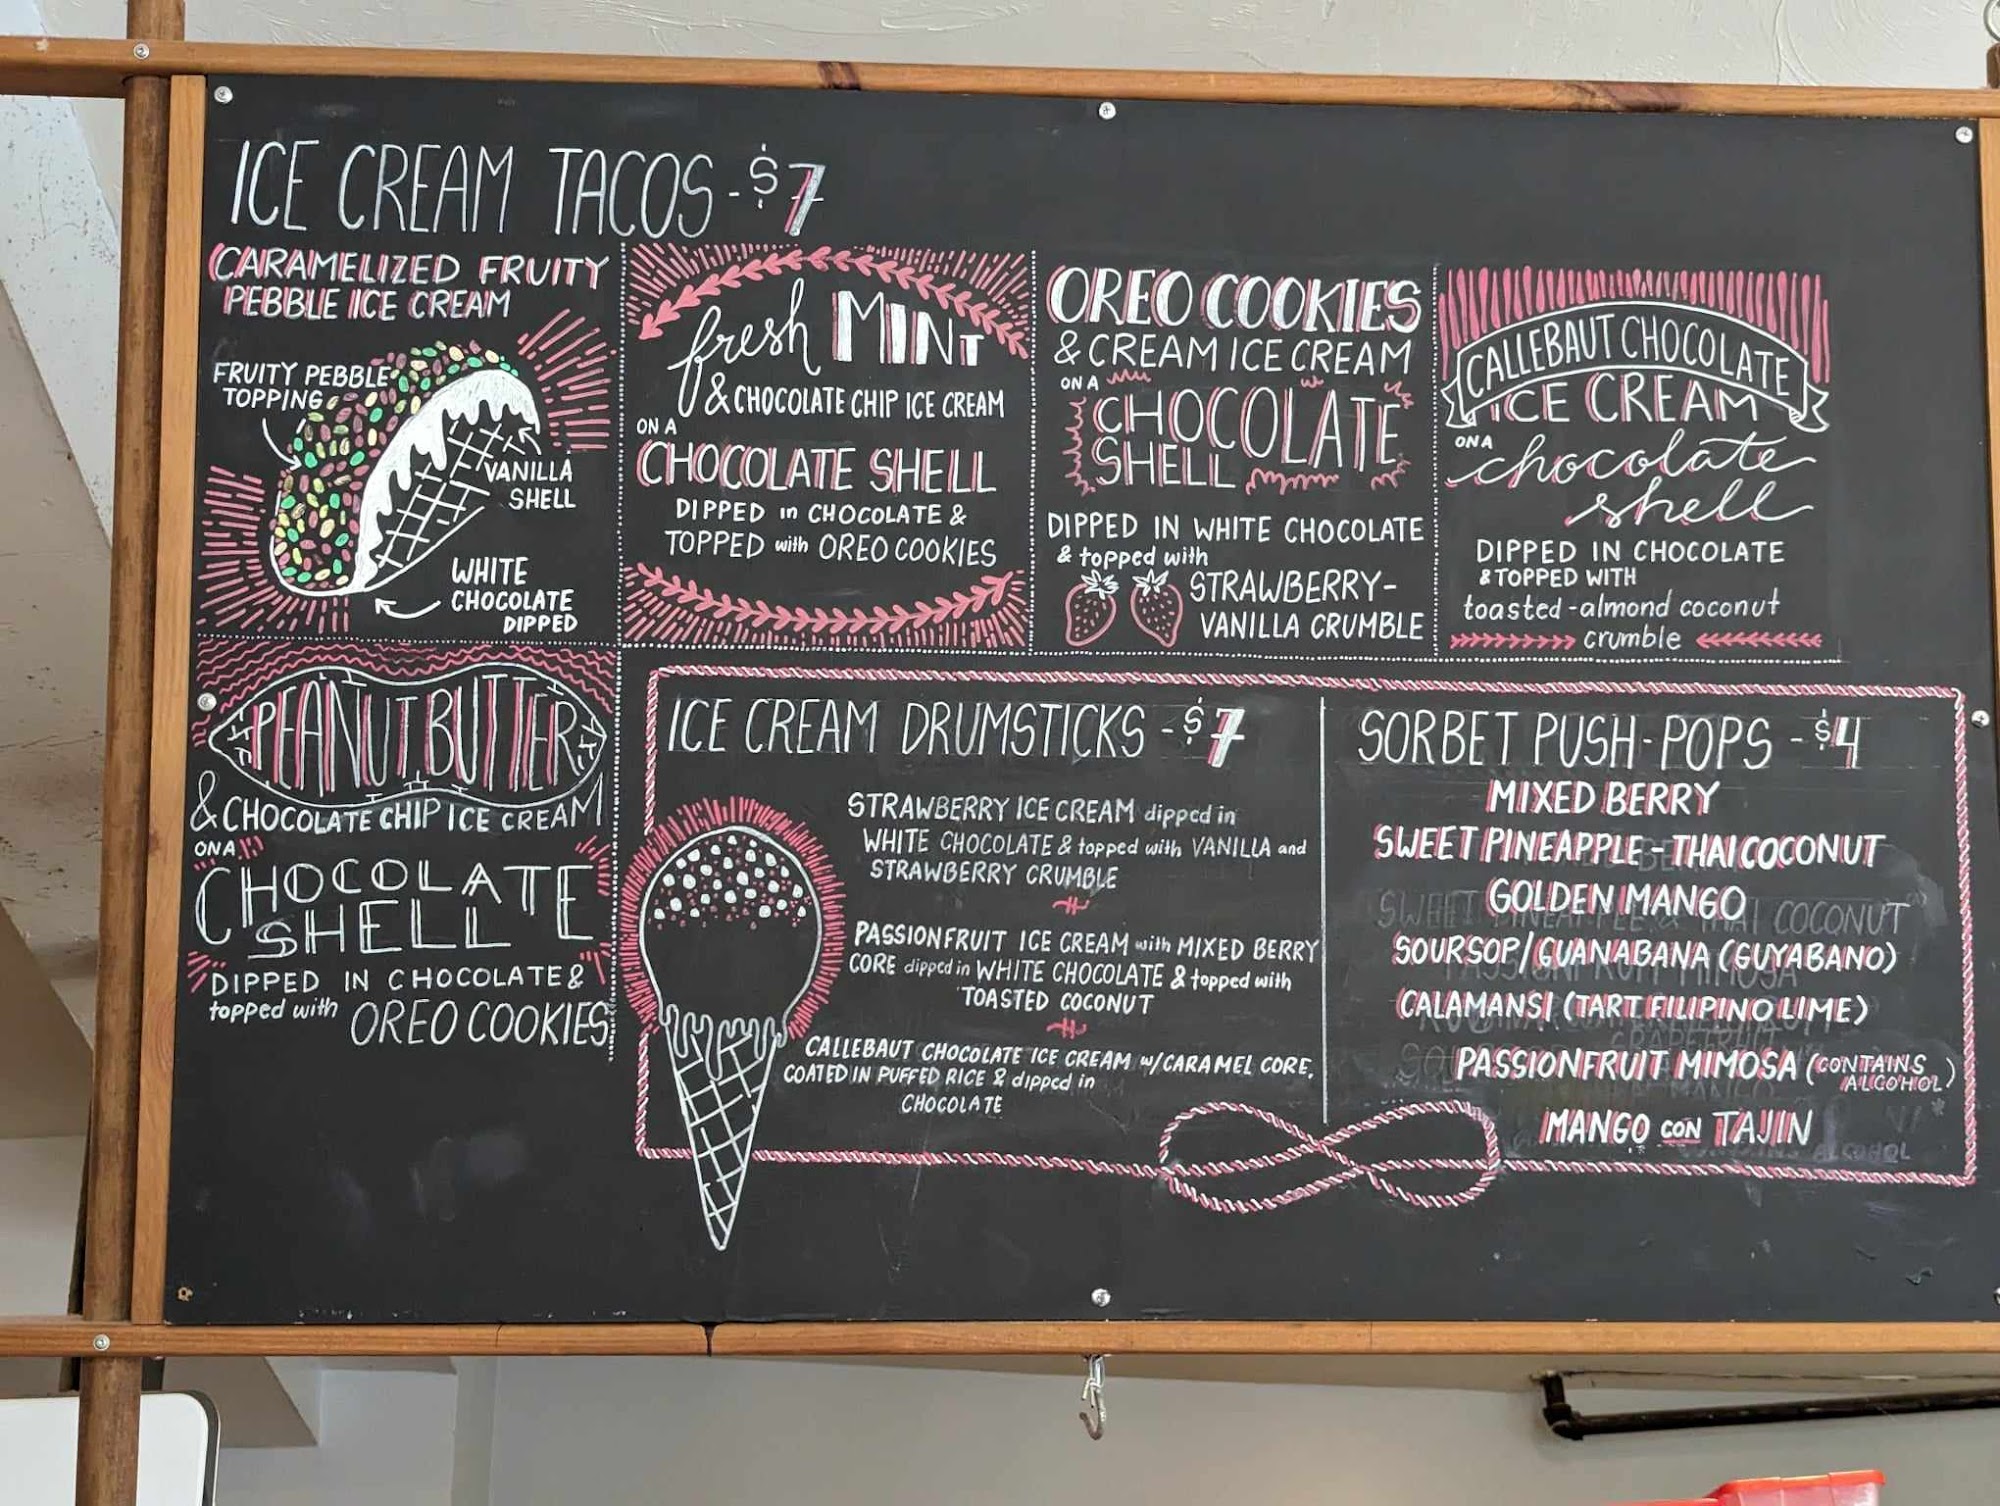 ICE CREAM TACOS - $7
CARAMELIZED FRUITY
PEBBLE ICE CREAM
FRUITY PEBBLE
TOPPING
VANILLA
SHELL
WHITE
CHOCOLATE
DIPPED
fresh MINT
& CHOCOLATE CHIP ICE CREAM
ON A
CHOCOLATE SHELL
DIPPED in CHOCOLATE &
TOPPED with OREO COOKIES
OREO COOKIES
& CREAM ICE CREAM
ON A
CHOCOLATE
SHELL
DIPPED IN WHITE CHOCOLATE
& topped with
STRAWBERRY-
VANILLA CRUMBLE
CALLEBAUT CHOCOLATE
ICE CREAM
ON A
chocolate
shell
DIPPED IN CHOCOLATE
& TOPPED WITH
toasted-almond coconut
crumble
PEANUT BUTTER
& CHOCOLATE CHIP ICE CREAM
ON A
CHOCOLATE
SHELL
DIPPED IN CHOCOLATE &
topped with OREO COOKIES
ICE CREAM DRUMSTICKS - $7
STRAWBERRY ICE CREAM dipped in
WHITE CHOCOLATE & topped with VANILLA and
STRAWBERRY CRUMBLE
PASSIONFRUIT ICE CREAM with MIXED BERRY
CORE dipped in WHITE CHOCOLATE & topped with
TOASTED COCONUT
CALLEBAUT CHOCOLATE ICE CREAM w/CARAMEL CORE,
COATED IN PUFFED RICE & dipped in
CHOCOLATE
SORBET PUSH-POPS - $4
MIXED BERRY
SWEET PINEAPPLE - THAI COCONUT
GOLDEN MANGO
SOURSOP/GUANABANA (GUYABANO)
CALAMANSI (TART FILIPINO LIME)
PASSIONFRUIT MIMOSA (CONTAINS
ALCOHOL)
MANGO CON TAJIN